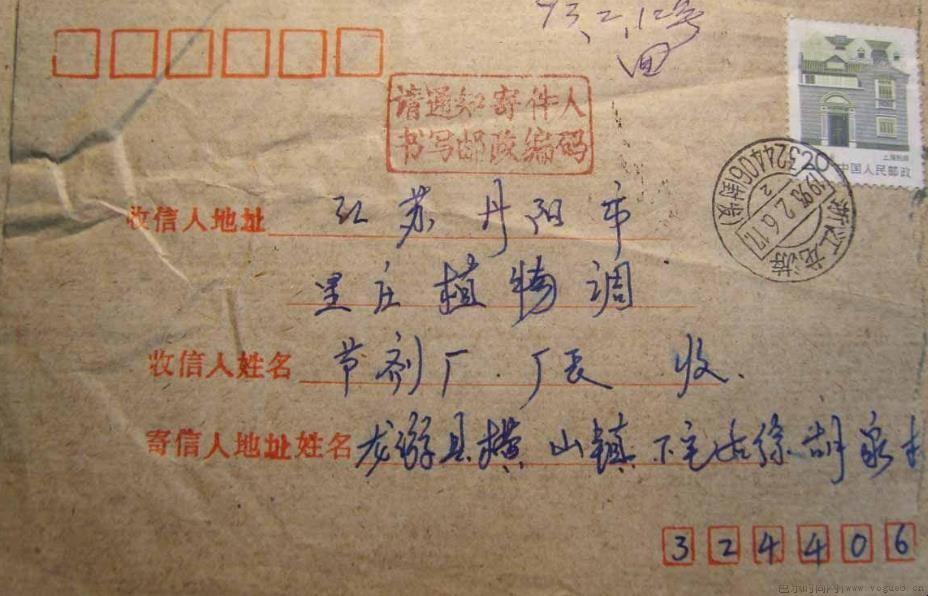 93.2.12号
回
请通知寄件人
书写邮政编码
上海民居
中国人民邮政
浙江龙游
1993.2.6.17
324406(封发)
收信人地址 江苏丹阳市
里庄植物调
收信人姓名 节剂厂 厂长 收.
寄信人地址姓名 龙游县横山镇下宅 徐胡家村
324406